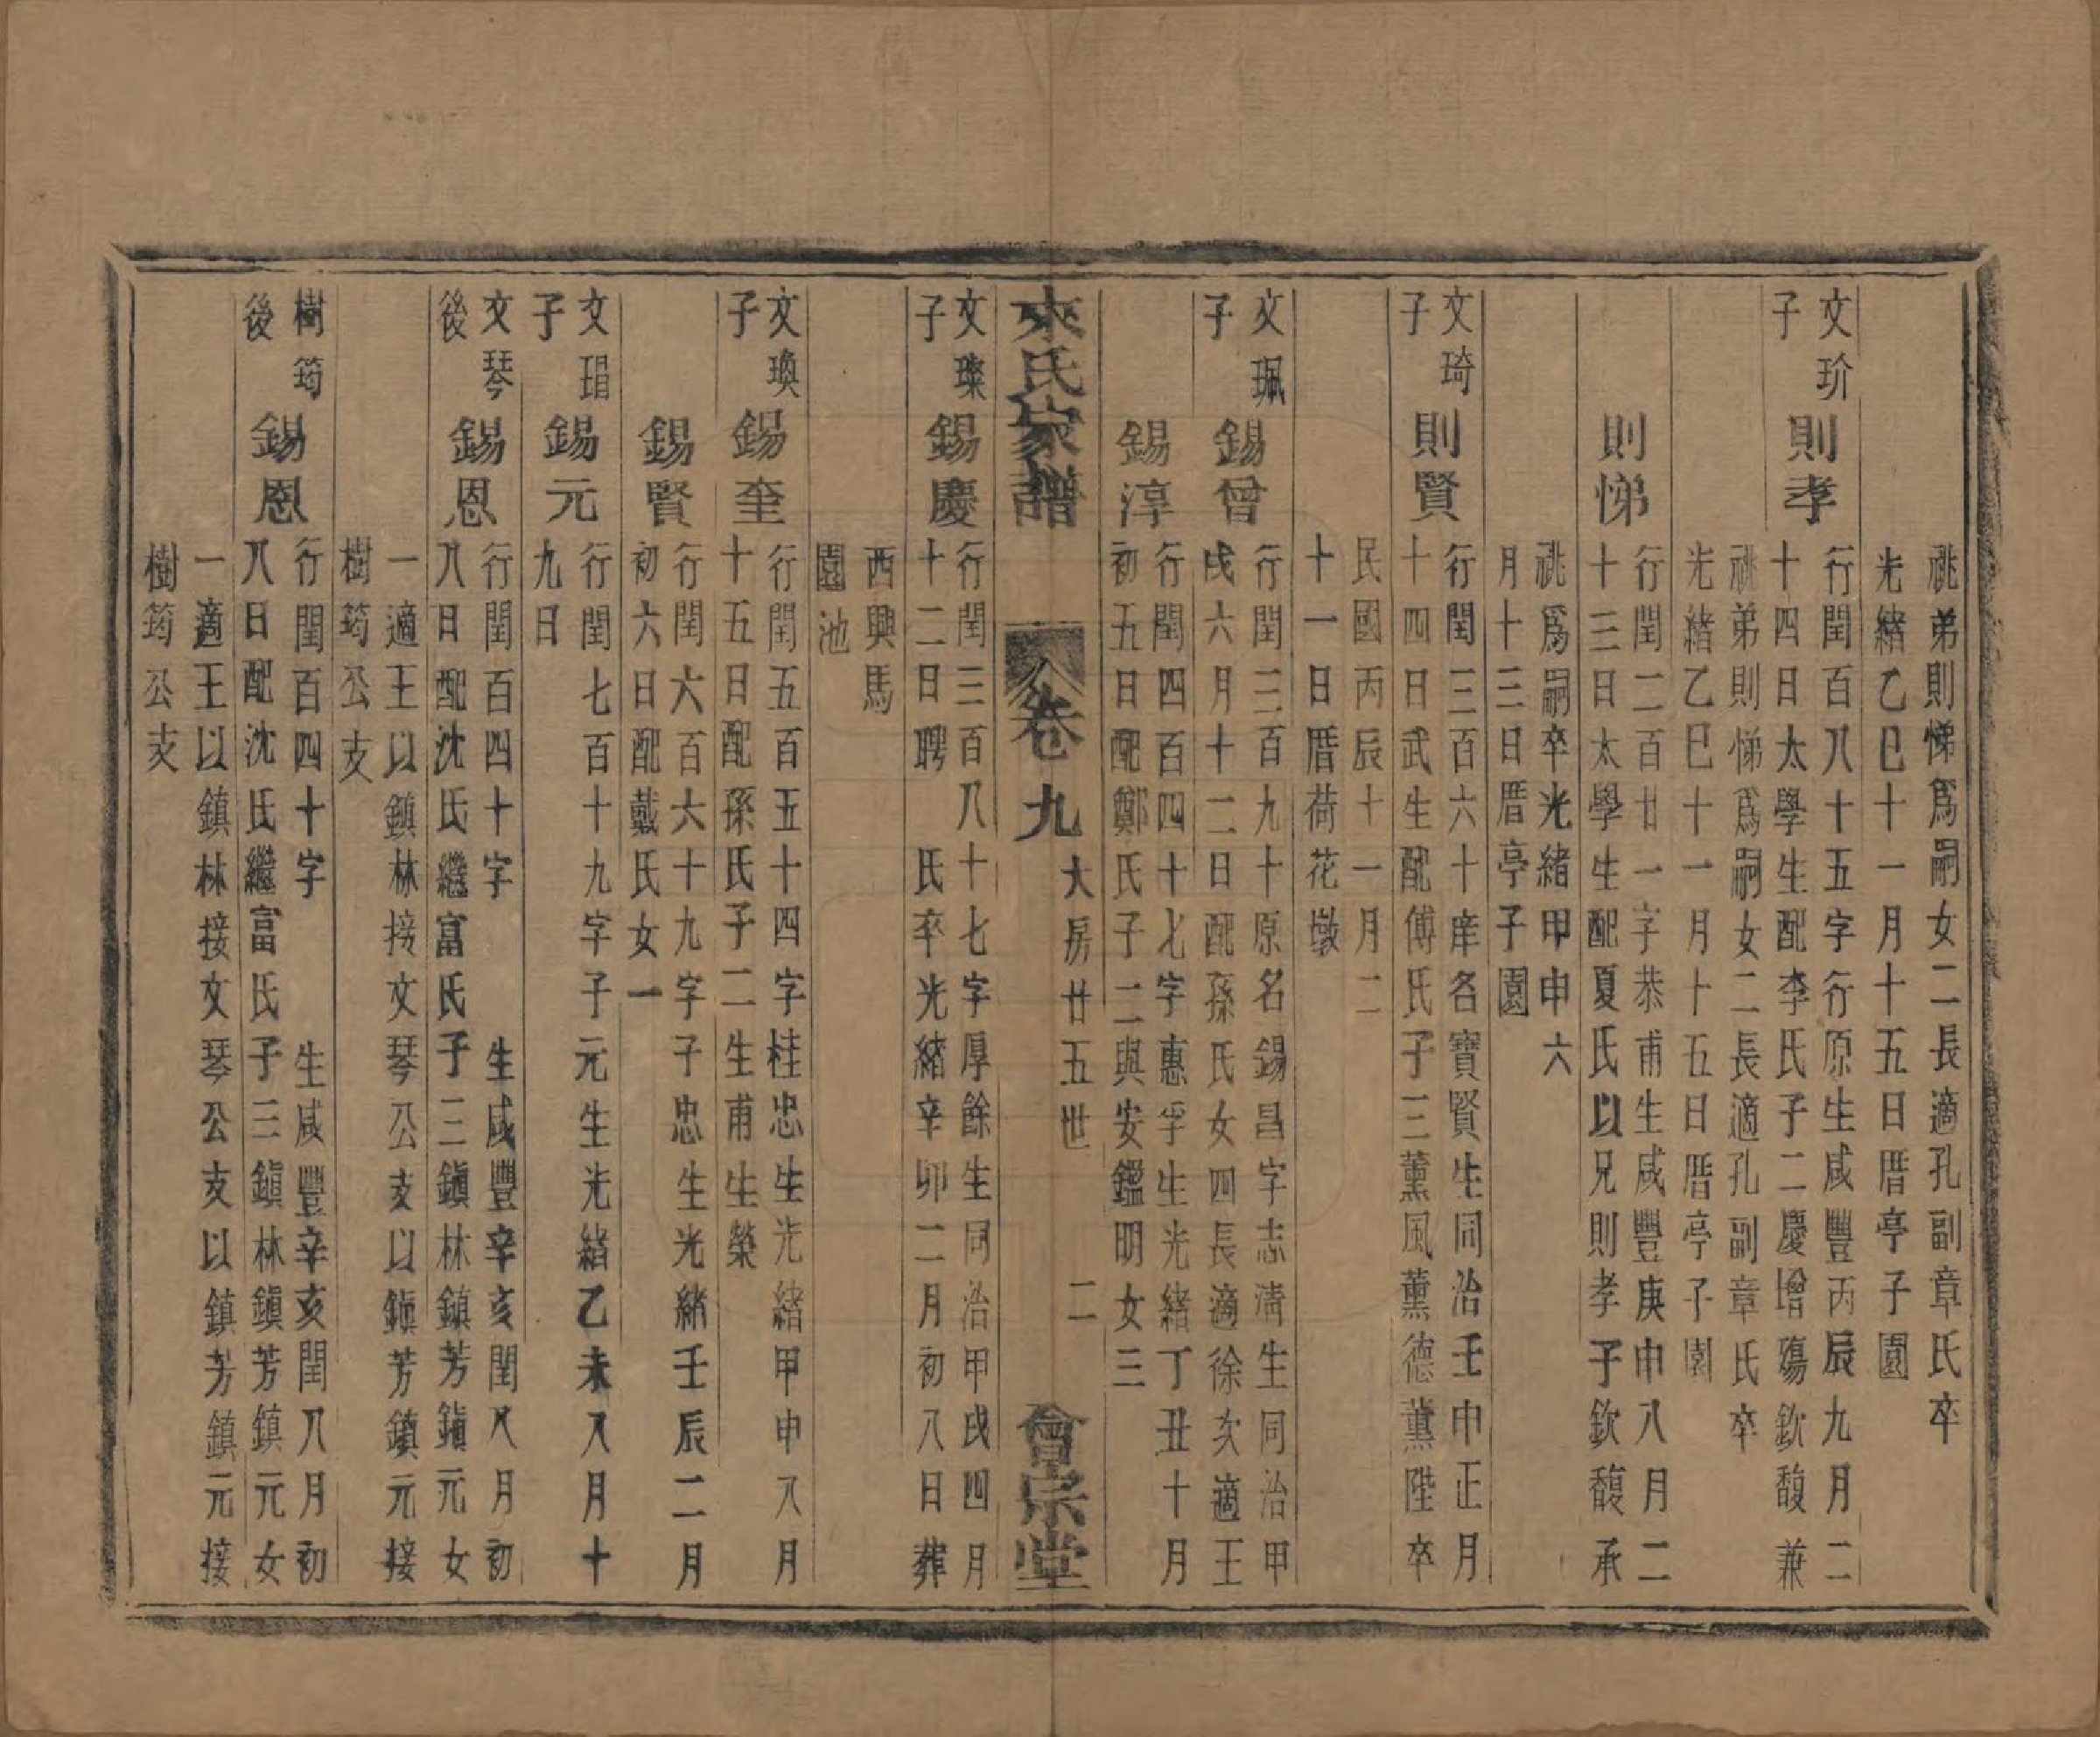 祧弟則悌爲嗣女二長適孔副章氏卒
光緒乙巳十一月十五日厝亭子園
文玠子
則孝
行閏百八十五字行原生咸豐丙辰九月二
十四日太學生配李氏子二慶增殤欽馥兼
祧弟則悌爲嗣女二長適孔副章氏卒
光緒乙巳十一月十五日厝亭子園
則悌
行閏二百廿一字恭甫生咸豐庚申八月二
十三日太學生配夏氏以兄則孝子欽馥承
祧爲嗣卒光緒甲申六
月十三日厝亭子園
文琦子
則賢
行閏三百六十庠名寶賢生同治壬申正月
十四日武生配傅氏子三薰風薰德薰陛卒
民國丙辰十一月二
十一日厝荷花墩
文珮子
錫曾
行閏三百九十原名錫昌字志淸生同治甲
戌六月十二日配孫氏女四長適徐次適王
錫淳
行閏四百四十七字惠孚生光緒丁丑十月
初五日配鄭氏子二與安鑑明女三
來氏家譜
卷九
大房廿五世
二
會宗堂
文璨子
錫慶
行閏三百八十七字厚餘生同治甲戌四月
十二日聘 氏卒光緒辛卯二月初八日葬
西興馬
園池
文煥子
錫奎
行閏五百五十四字桂忠生光緒甲申八月
十五日配孫氏子二生甫生榮
錫賢
行閏六百六十九字子忠生光緒壬辰二月
初六日配戴氏女一
文琩子
錫元
行閏七百十九字子元生光緒乙未八月十
九日
文琴後
錫恩
行閏百四十字 生咸豐辛亥閏八月初
八日配沈氏繼富氏子三鎭林鎭芳鎭元女
一適王以鎭林接文琴公支以鎭芳鎭元接
樹筠公支
樹筠後
錫恩
行閏百四十字 生咸豐辛亥閏八月初
八日配沈氏繼富氏子三鎭林鎭芳鎭元女
一適王以鎭林接文琴公支以鎭芳鎭元接
樹筠公支